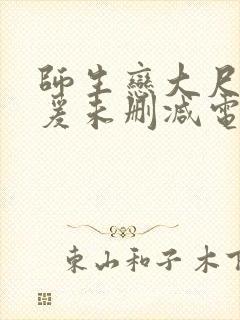 師生戀大尺
爰未刪減電
東山和子木下